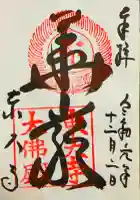 奉拝
令和元年
十二月一日
華厳
東大寺
大佛殿
東大寺